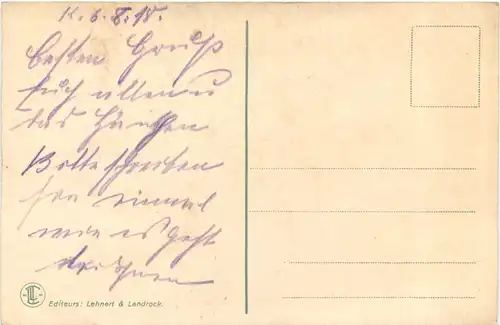 K. 6. 8. 18.
Besten Gruß
Euch allen u
das
Bitte schreiben
sie einmal
wie es geht
Editeurs: Lehnert & Landrock.